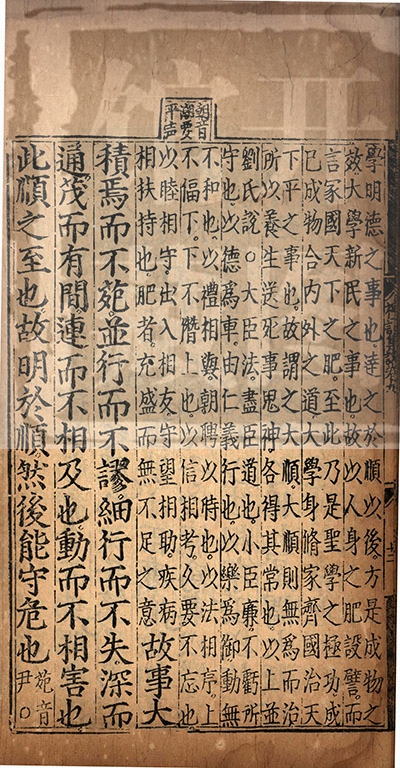 朝音
潮要
平声
學明德之事也達之於順以後方是成物之
效大學新民之事也故以人身之肥設譬而
言家國天下之肥至此乃是聖學之極功成
己成物合内外之道大學身脩家齊國治天
下平之事也故謂之大順大順則無爲而治
所以養生送死事鬼神各得其常也以上並
劉氏說○大臣法盡臣道也小臣廉不虧所
守也以德爲車由仁義行也以樂爲御動無
不和也以禮相與朝聘以時也以法相序上
不偪下下不僭上也以信相考久要不忘也
以睦相守出入相友守望相助疾病
相扶持也肥者充盛而無不足之意
故事大
積焉而不苑並行而不謬細行而不失深而
通茂而有間連而不相及也動而不相害也
此順之至也故明於順然後能守危也
苑音
尹○